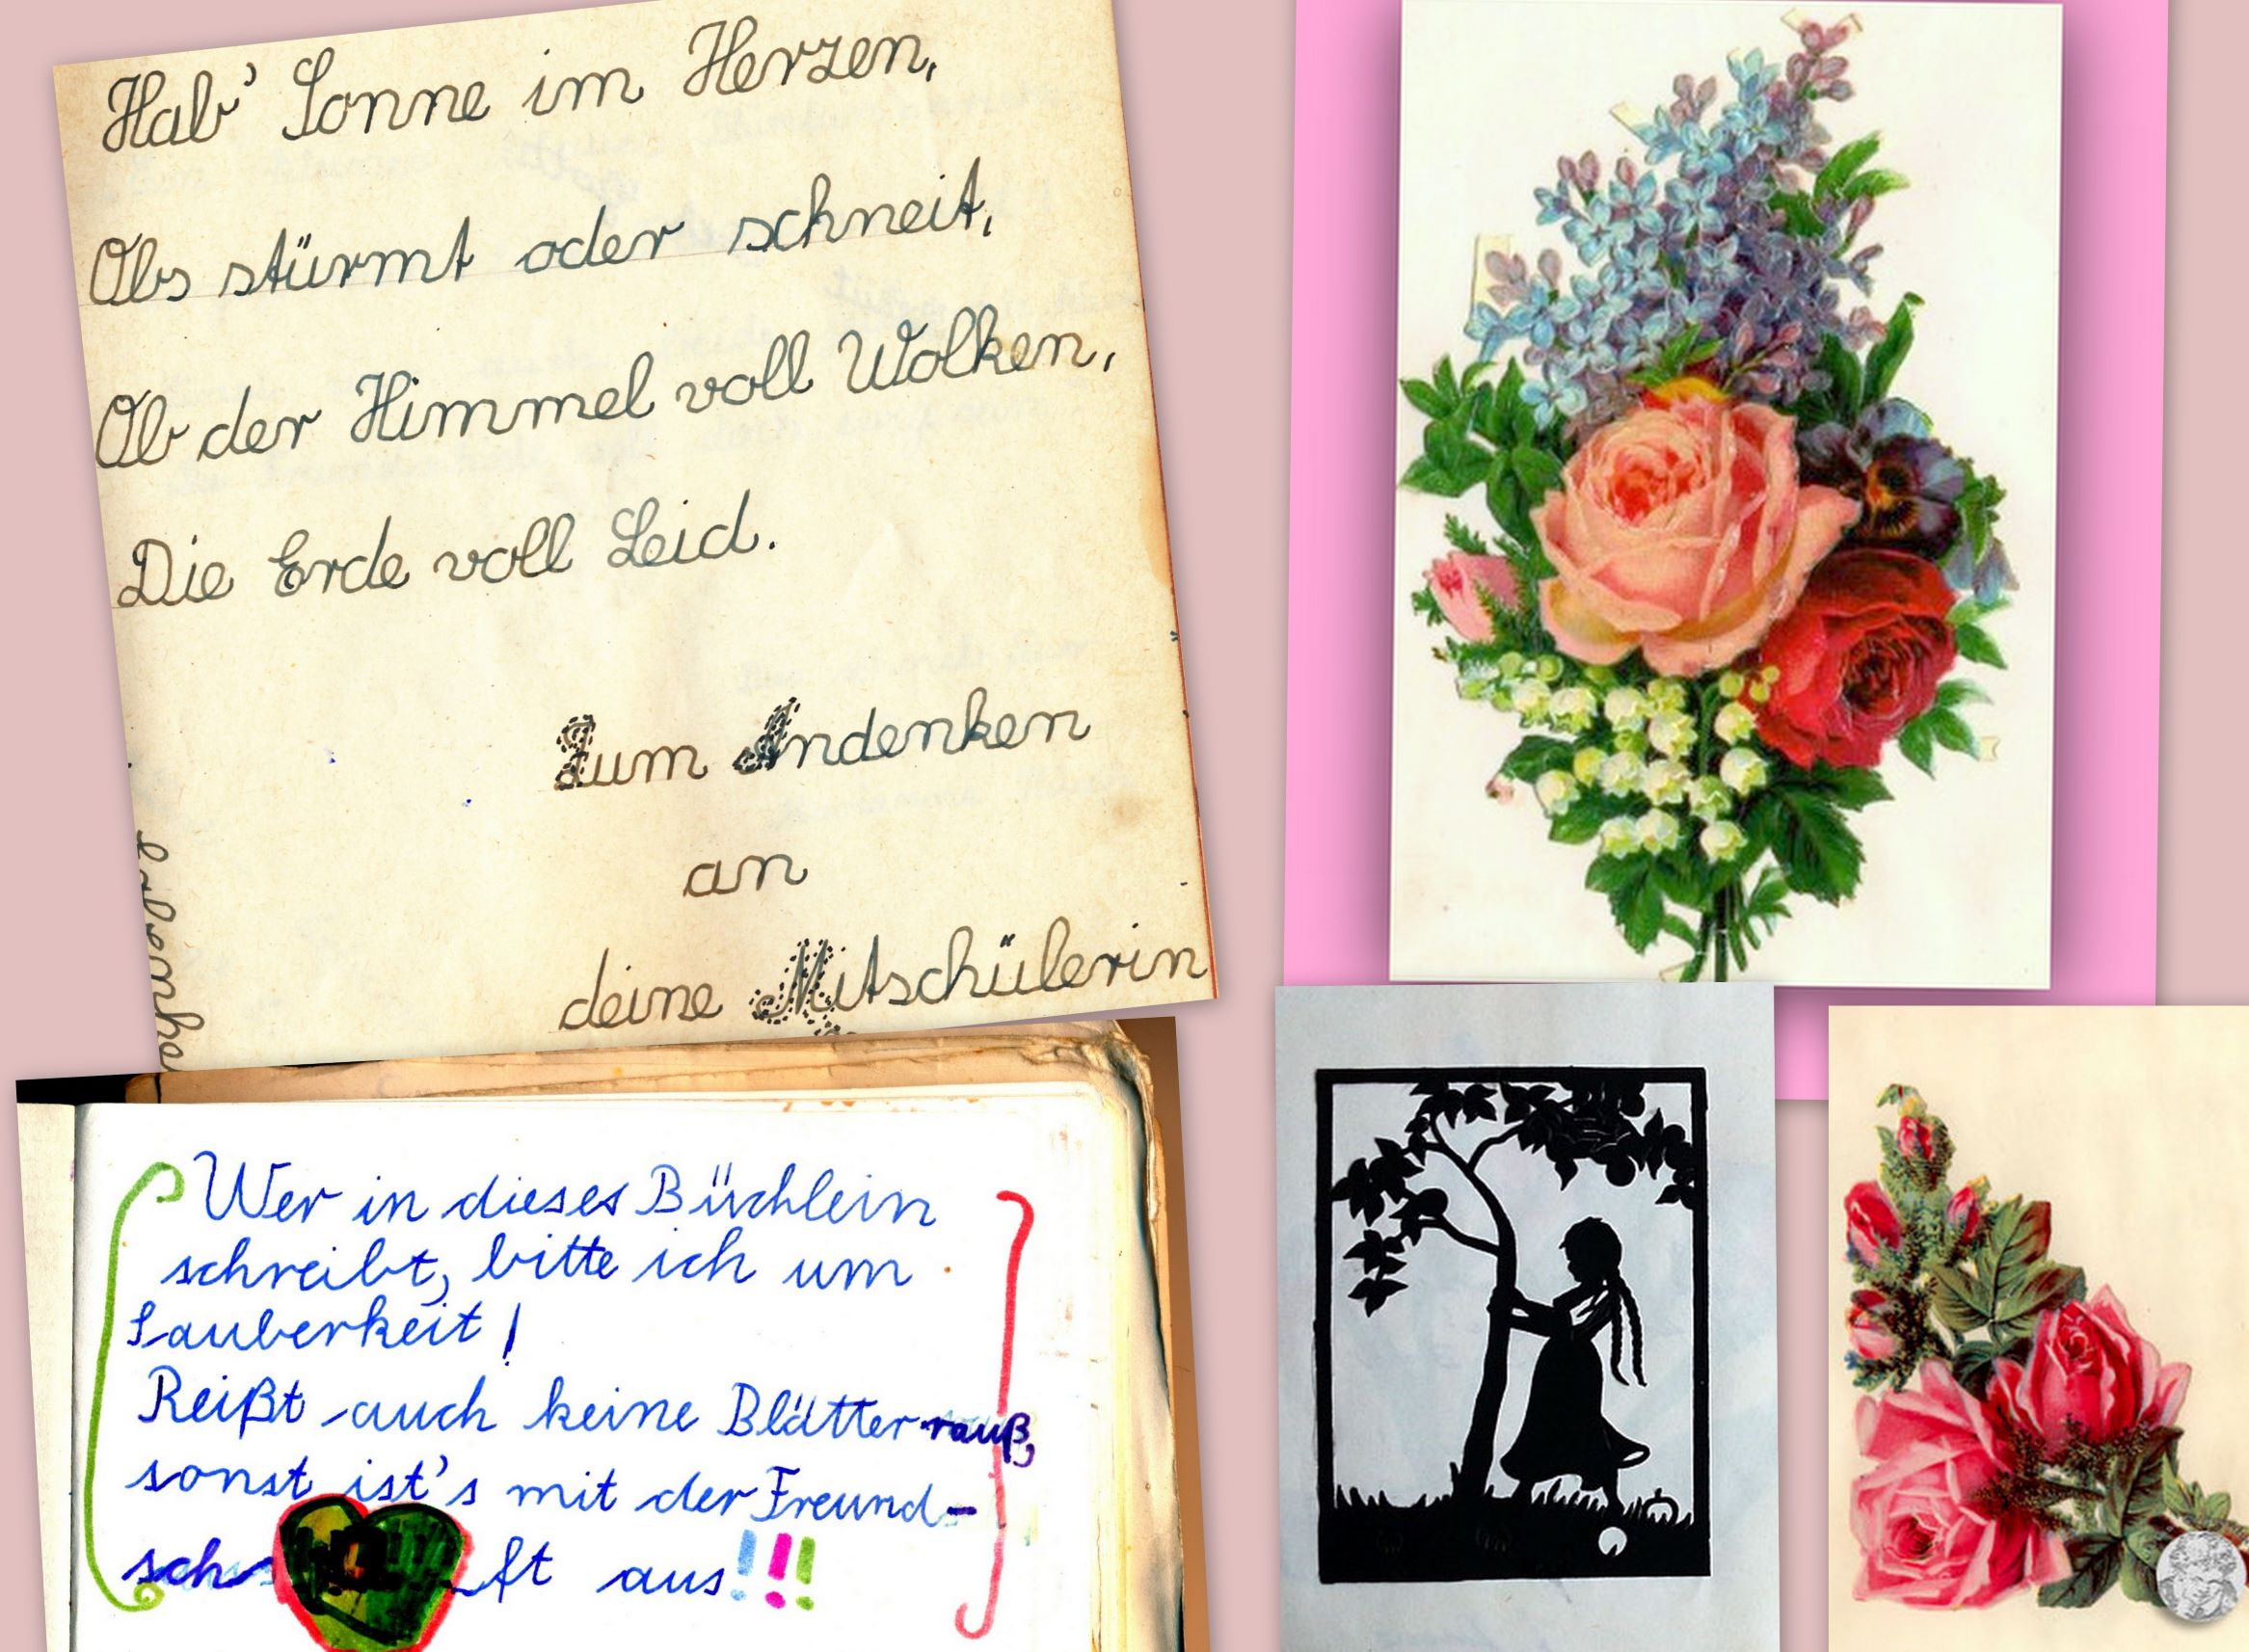 Hab' Sonne im Herzen,
Obs stürmt oder schneit,
Ob der Himmel voll Wolken,
Die Erde voll Leid.
Zum Andenken
an
deine Mitschülerin
Wer in dieses Büchlein
schreibt, bitte ich um
Sauberkeit!
Reißt auch keine Blätter rauß,
sonst ist's mit der Freund-
schaft aus!!!